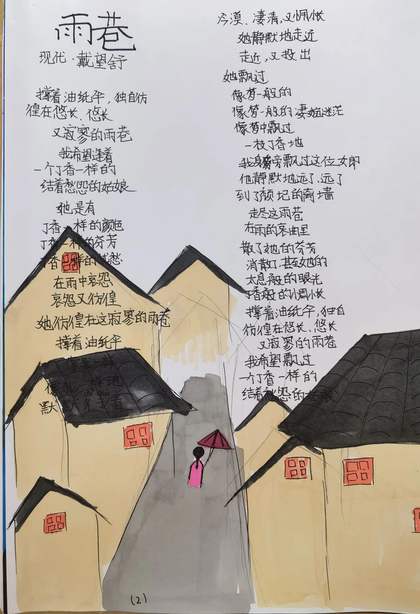 雨巷
现代·戴望舒
撑着油纸伞，独自彷
徨在悠长、悠长
又寂寥的雨巷
我希望逢着
一个丁香一样的
结着愁怨的姑娘
她是有
丁香一样的颜色
丁香一样的芬芳
丁香一样的忧愁
在雨中哀怨
哀怨又彷徨
她彷徨在这寂寥的雨巷
撑着油纸伞
一样
默
冷漠、凄清，又惆怅
她静默地走近
走近，又投出
她飘过
像梦一般的
像梦一般的凄婉迷茫
像梦中飘过
一枝丁香地
我身旁飘过这位女郎
她静默地远了、远了
到了颓圮的篱墙
走尽这雨巷
在雨的哀曲里
散了她的芬芳
消散了甚至她的
太息般的眼光
丁香般的惆怅
撑着油纸伞，独自
彷徨在悠长、悠长
又寂寥的雨巷
我希望飘过
一个丁香一样的
结着愁怨的
(2)